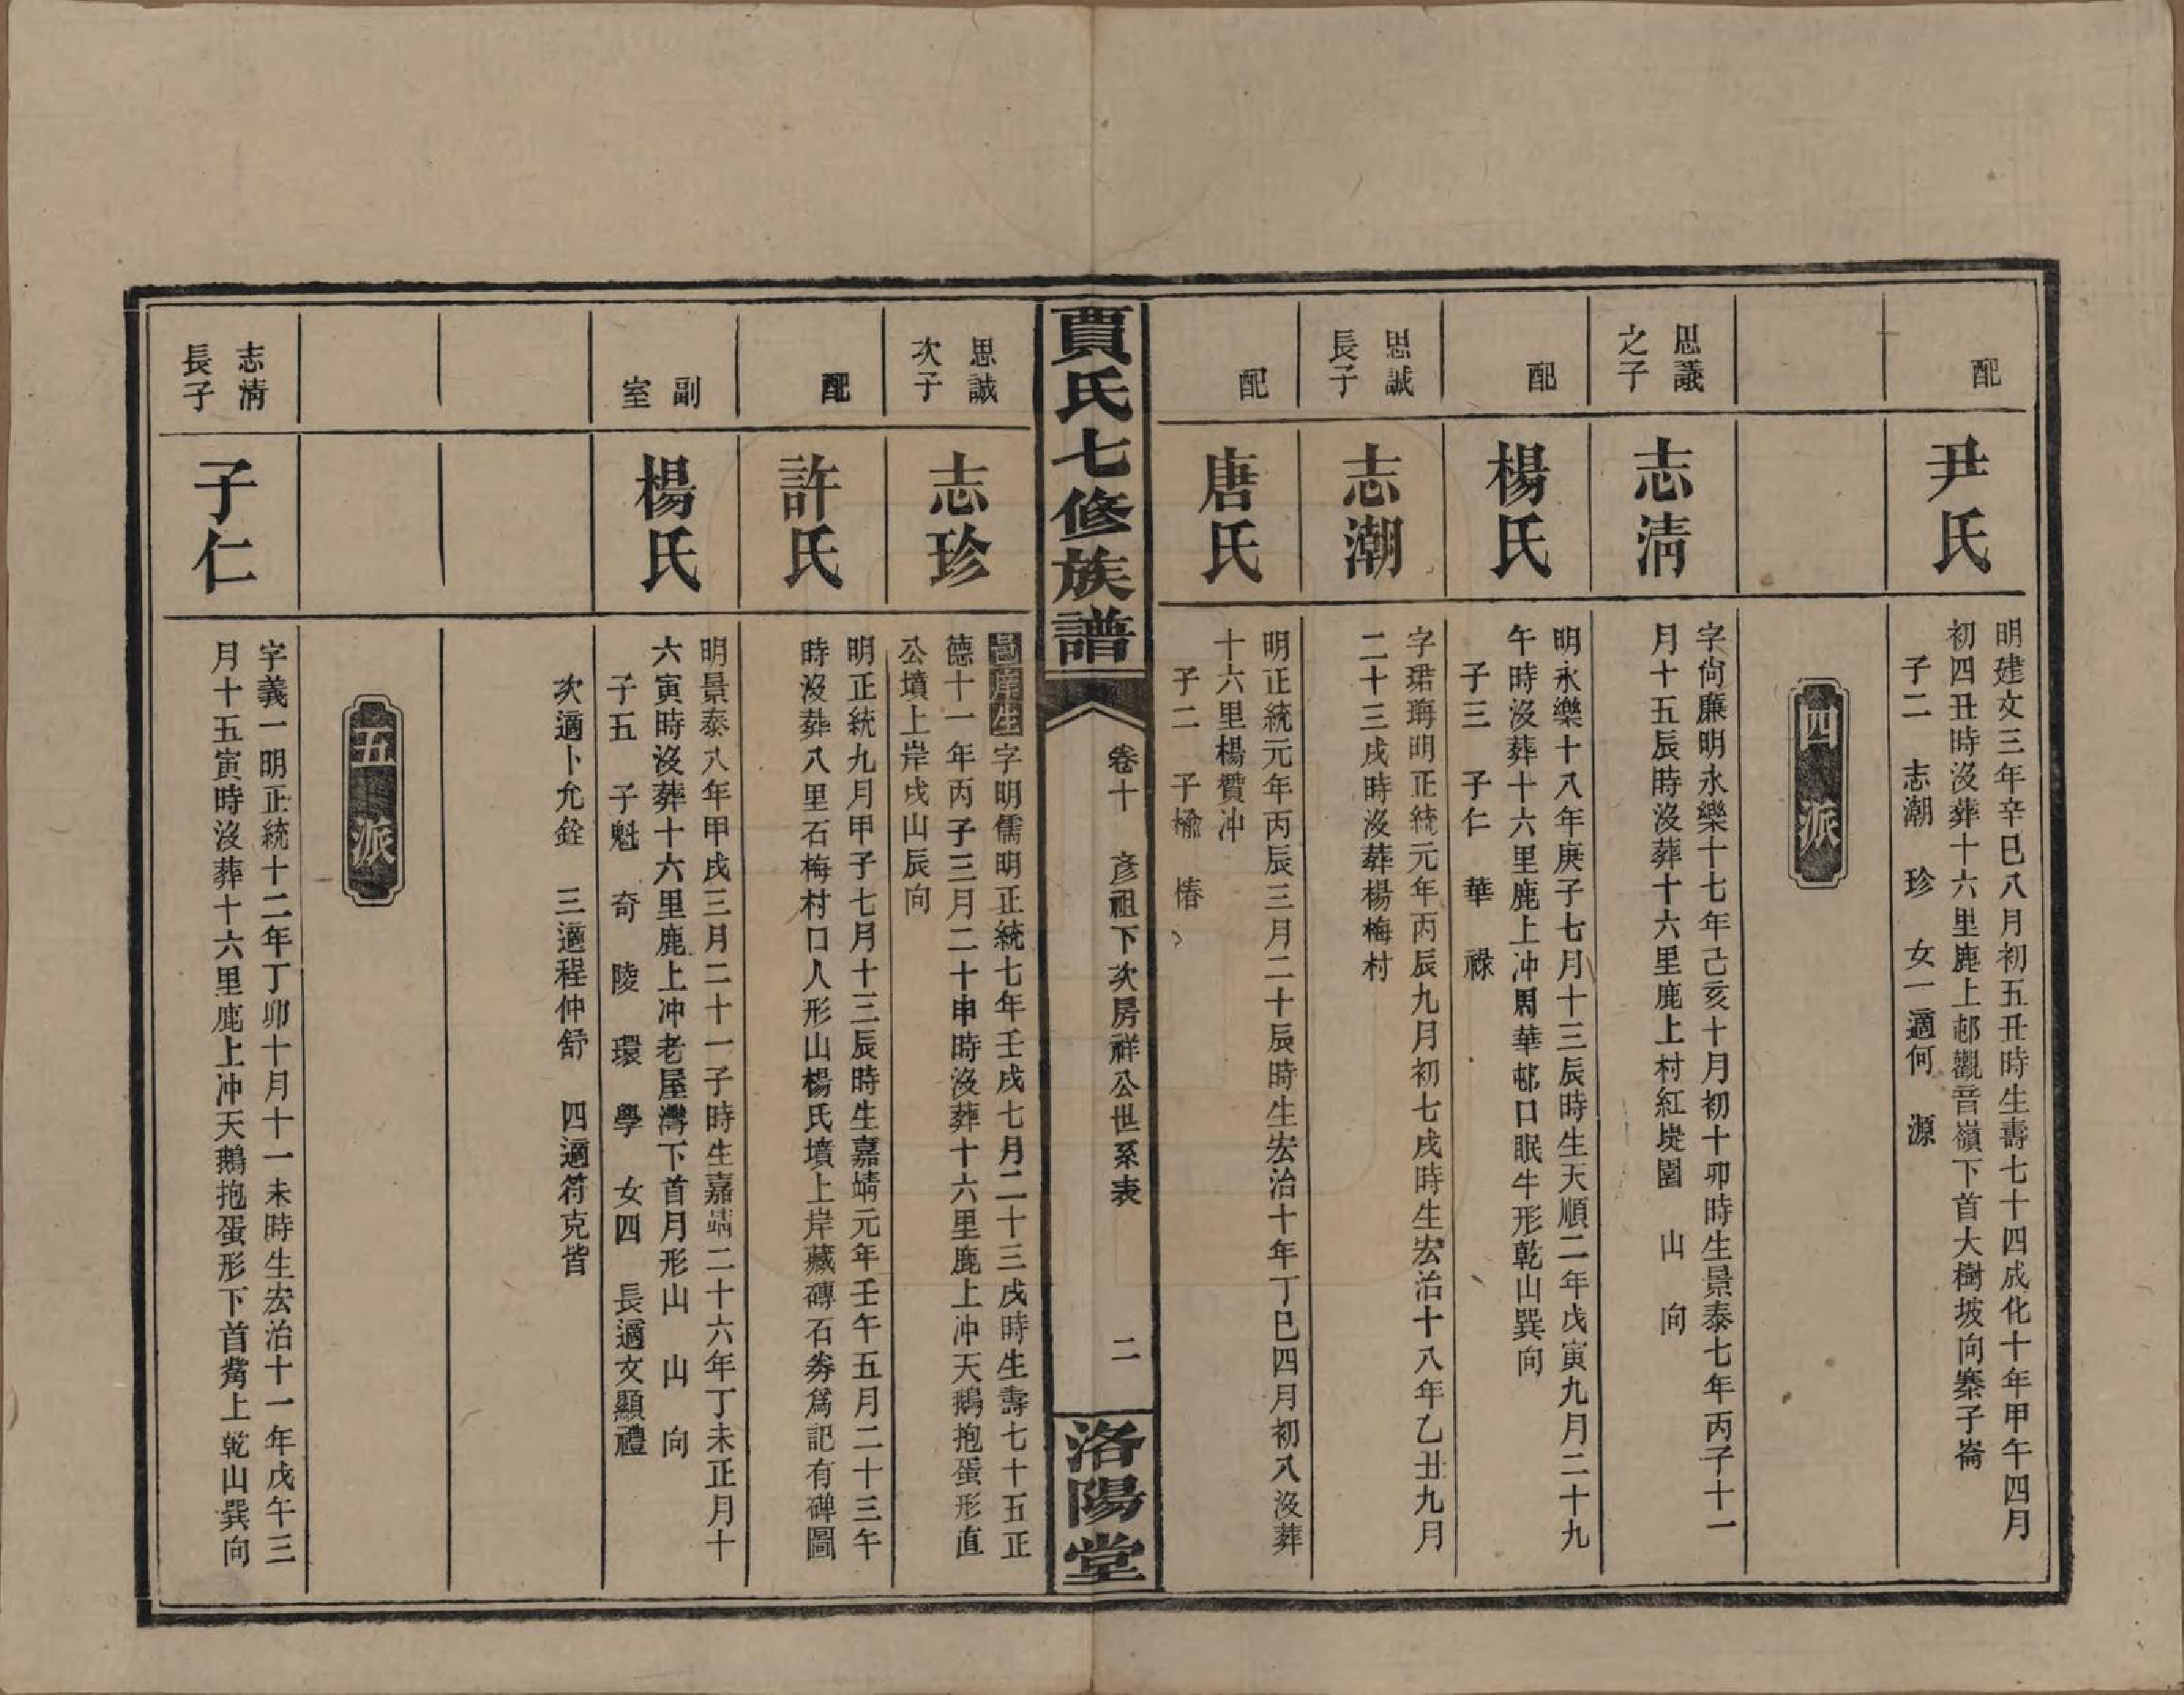 配
尹氏
明建文三年辛巳八月初五丑時生壽七十四成化十年甲午四月
初四丑時沒葬十六里鹿上邨觀音嶺下首大樹坡向寨子崙
子二　志潮　珍　女一適何　源
四派
思議
之子
志清
字尙廉明永樂十七年己亥十月初十卯時生景泰七年丙子十一
月十五辰時沒葬十六里鹿上村紅堘園　山　向
配
楊氏
明永樂十八年庚子七月十三辰時生天順二年戊寅九月二十九
午時沒葬十六里鹿上冲周華邨口眠牛形乾山巽向
子三　子仁　華　祿
思誠
長子
志潮
字珺珻明正統元年丙辰九月初七戌時生宏治十八年乙丑九月
二十三戌時沒葬楊梅村
配
唐氏
明正統元年丙辰三月二十辰時生宏治十年丁巳四月初八沒葬
十六里楊贊冲
子二　子檢　椿
賈氏七修族譜
卷十　彦祖下次房祥公世系表
二
洛陽堂
思誠
次子
志珍
庠生字明儒明正統七年壬戌七月二十三戌時生壽七十五正
德十一年丙子三月二十申時沒葬十六里鹿上冲天鵝抱蛋形直
公墳上岸戌山辰向
配
許氏
明正統九月甲子七月十三辰時生嘉靖元年壬午五月二十三午
時沒葬八里石梅村口人形山楊氏墳上岸藏磚石券爲記有碑圖
副
室
楊氏
明景泰八年甲戌三月二十一子時生嘉靖二十六年丁未正月十
六寅時沒葬十六里鹿上冲老屋灣下首月形山　山　向
子五　子魁　奇　陵　環　學　女四　長適文顯禮
次適卜允銓　三適程仲舒　四適符克皆
五派
志清
長子
子仁
字義一明正統十二年丁卯十月十一未時生宏治十一年戊午三
月十五寅時沒葬十六里鹿上冲天鵝抱蛋形下首觜上乾山巽向